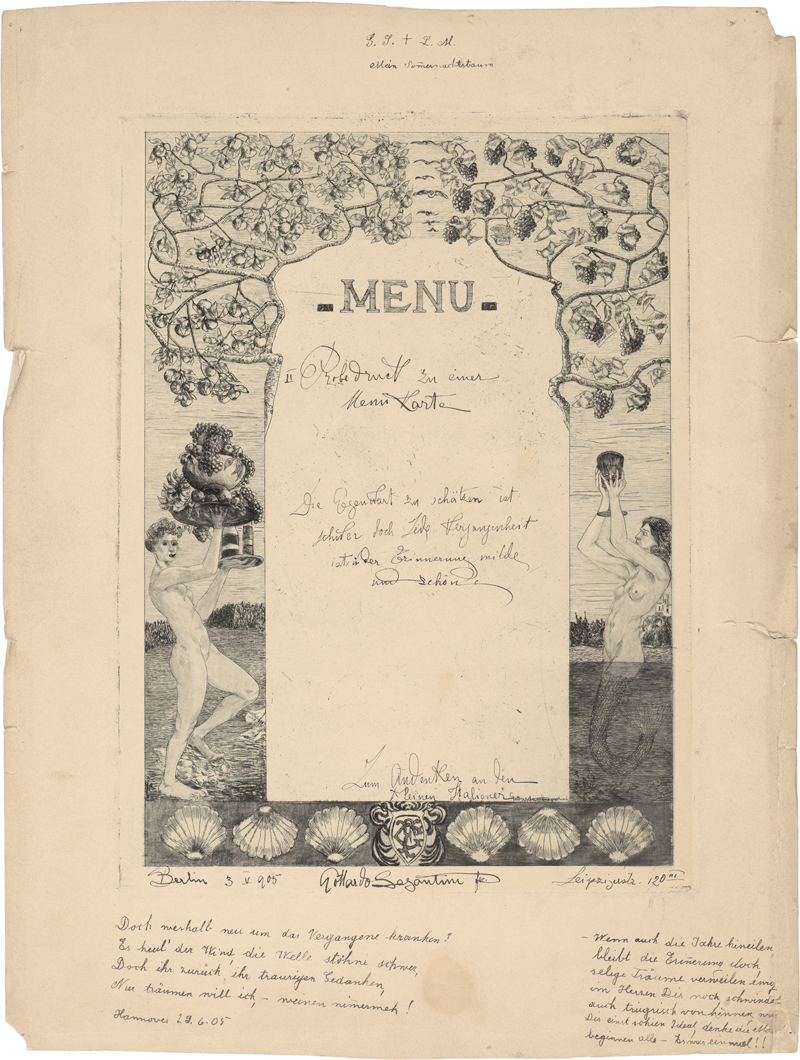 G. S. + L. M.
Mein Somernachtstraum
MENU
II Probedruck zu einer
Menu Karte
Die Gegenwart zu schätzen ist
schwer doch jede Vergangenheit
ist in der Erinnerung milde
und schön
Zum Andenken an den
kleinen Italiener
Berlin 3 V 905
Gottardo Segantini
Leipzigerstr. 120 III
Doch weshalb nur um das Vergangene kranken?
Es heul' der Wind die Welle stöhne schwer,
Doch ihr zurück, ihr traurigen Gedanken,
Nur träumen will ich, – weinen nimermeh!
Hannover 29.6.05
– Wenn auch die Jahre hineilen,
bleibt die Erinerung doch
selige Träume verweilen ewig
im Herzen Dir noch schwindet
auch trügrisch von hinnen
Dir einst schien Ideal, denke die
beginnen alle – Es war einmal!!